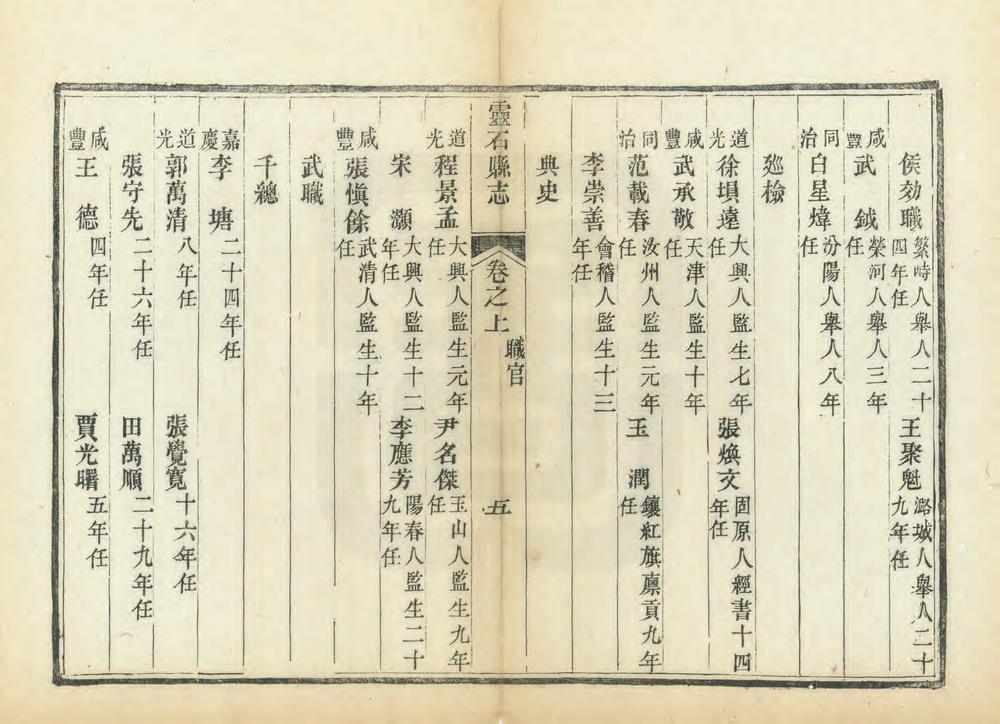 侯効職 繁峙人舉人二十四年任 王聚魁 潞城人舉人二十九年任
咸豐 武鉞 榮河人舉人三年任
同治 白星煒 汾陽人舉人八年任
廵檢
道光 徐塤遠 大興人監生七年任 張煥文 固原人經書十四年任
咸豐 武承敬 天津人監生十年任
同治 范載春 汝州人監生元年任 玉潤 鑲紅旗廪貢九年任
李崇善 會稽人監生十三年任
典史
靈石縣志 卷之上 職官 五
道光 程景孟 大興人監生元年任 尹名傑 玉山人監生九年任
宋灝 大興人監生十二年任 李應芳 陽春人監生二十九年任
咸豐 張愼餘 武清人監生十年任
武職
千總
嘉慶 李塘 二十四年任
道光 郭萬清 八年任 張覺寬 十六年任
張守先 二十六年任 田萬順 二十九年任
咸豐 王德 四年任 賈光曙 五年任